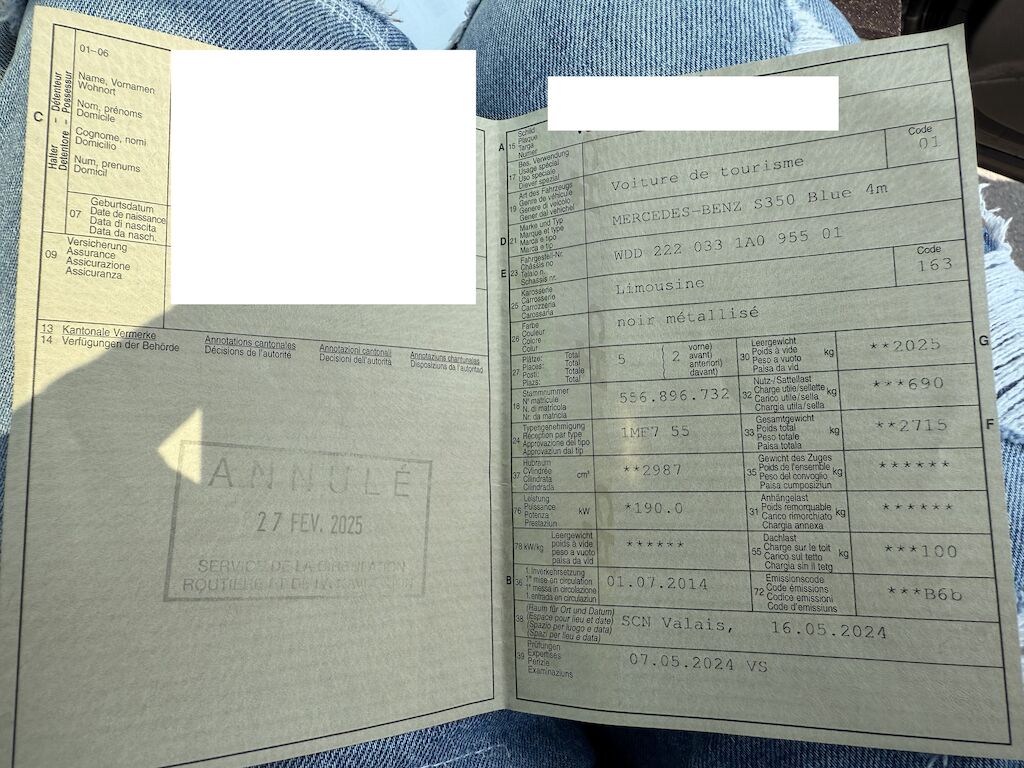 01-06
Name, Vornamen
Wohnort
Nom, prénoms
Domicile
Cognome, nomi
Domicilio
Num, prenums
Domicil
C
Halter – Détenteur
Detentore – Possessur
07
Geburtsdatum
Date de naissance
Data di nascita
Data da nasch.
09
Versicherung
Assurance
Assicurazione
Assicuranza
13 Kantonale Vermerke
14 Verfügungen der Behörde
Annotations cantonales
Décisions de l'autorité
Annotazioni cantonali
Decisioni dell'autorità
Annotaziuns chantunalas
Disposiziuns da l'autoritad
ANNULÉ
27 FEV. 2025
SERVICE DE LA CIRCULATION
ROUTIERE ET DE LA
A 15
Schild
Plaque
Targa
Numer
17
Bes. Verwendung
Usage spécial
Uso speciale
Diever spezial
19
Art des Fahrzeugs
Genre de véhicule
Genere di veicolo
Gener dal vehichel
Voiture de tourisme
Code
01
D 21
Marke und Typ
Marque et type
Marca e tipo
Marca e tip
MERCEDES-BENZ S350 Blue 4m
E 23
Fahrgestell-Nr.
Châssis no
Telaio n.
Schassis nr.
WDD 222 033 1A0 955 01
25
Karosserie
Carrosserie
Carrozzeria
Carossaria
Limousine
Code
163
26
Farbe
Couleur
Colore
Colur
noir métallisé
27
Plätze: Total
Places: Total
Posti: Totale
Plazs: Total
5
2
vorne)
avant)
anteriori)
davant)
30
Leergewicht
Poids à vide
Peso a vuoto
Paisa da vid
kg
**2025
G
18
Stammnummer
N° matricule
N. di matricola
Nr. da matricla
556.896.732
32
Nutz-/Sattellast
Charge utile/sellette
Carico utile/sella
Chargia utila/sella
kg
***690
24
Typengenehmigung
Réception par type
Approvazione del tipo
Approvaziun dal tip
1MF7 55
33
Gesamtgewicht
Poids total
Peso totale
Paisa totala
kg
**2715
F
37
Hubraum
Cylindrée
Cilindrata
Cilindrada
cm³
**2987
35
Gewicht des Zuges
Poids de l'ensemble
Peso del convoglio
Paisa cumposiziun
kg
******
76
Leistung
Puissance
Potenza
Prestaziun
kW
*190.0
31
Anhängelast
Poids remorquable
Carico rimorchiato
Chargia annexa
kg
******
78 kW/kg
Leergewicht
poids à vide
peso a vuoto
paisa da vid
******
55
Dachlast
Charge sur le toit
Carico sul tetto
Chargia sin il tetg
kg
***100
B 36
1. Inverkehrsetzung
1re mise en circulation
1. messa in circolazione
1. entrada en circulaziun
01.07.2014
72
Emissionscode
Code émissions
Codice emissioni
Code d'emissiuns
***B6b
38
(Raum für Ort und Datum)
(Espace pour lieu et date)
(Spazio per luogo e data)
(Spazi per lieu e data)
SCN Valais, 16.05.2024
39
Prüfungen
Expertises
Perizie
Examinaziuns
07.05.2024 VS